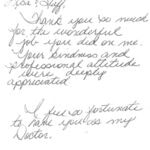 Dear Staff,
Thank you so much
for the wonderful
job you did on me.
Your kindness and
professional attitude
were deeply
appreciated
I feel so fortunate
to have you as my
Doctor.